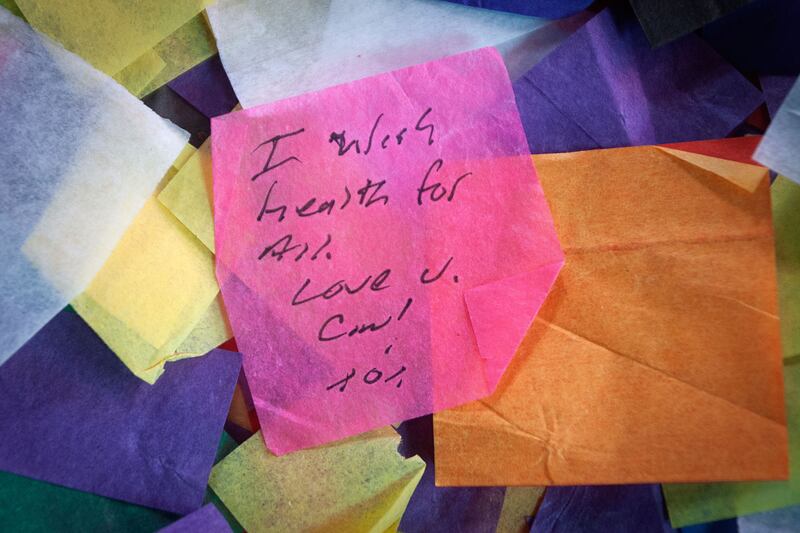 I wish
health for
All.
Love U.